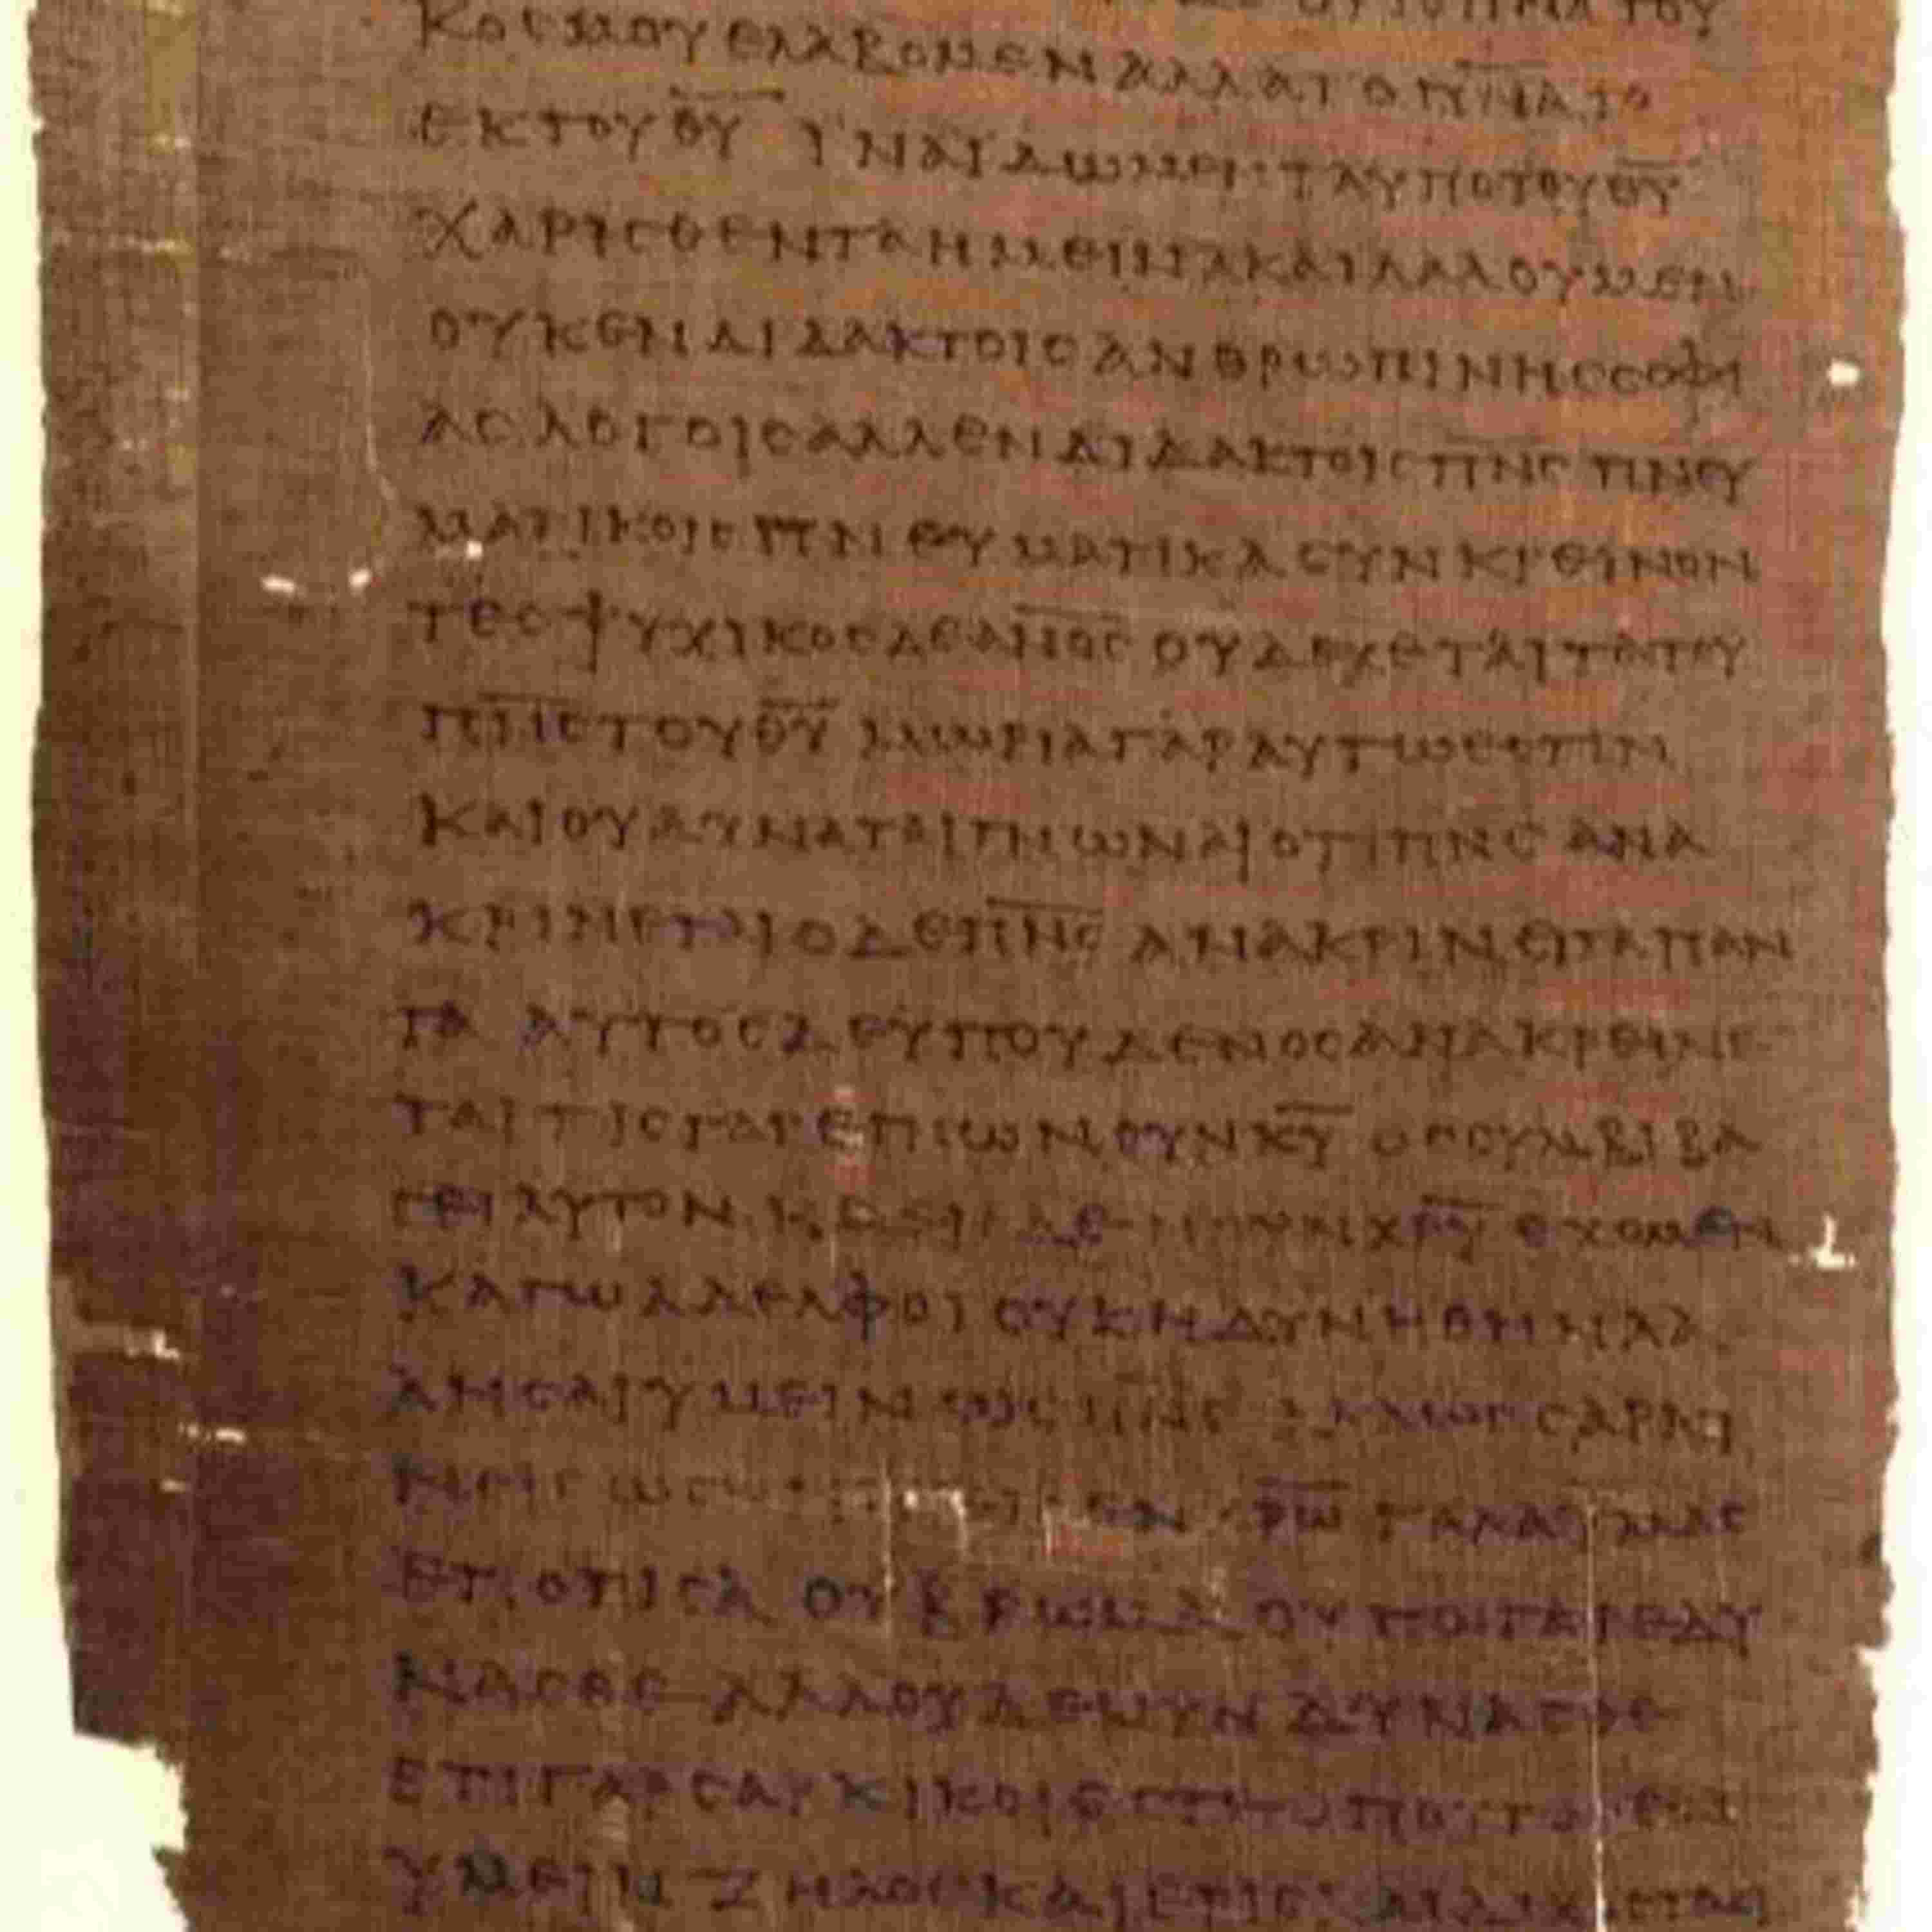 ΤΟΥ
ΚΟCΜΟΥ ΕΛΑΒΟΜΕΝ ΑΛΛΑ ΤΟ Π̅Ν̅Α̅ ΤΟ
ΕΚ ΤΟΥ Θ̅Υ̅ ΪΝΑ ΙΔΩΜΕΝ ΤΑ ΥΠΟ ΤΟΥ Θ̅Υ̅
ΧΑΡΙCΘΕΝΤΑ ΗΜΕΙΝ Α ΚΑΙ ΛΑΛΟΥΜΕΝ
ΟΥΚ ΕΝ ΔΙΔΑΚΤΟΙC ΑΝΘΡΩΠΙΝΗC CΟΦΙ
ΑC ΛΟΓΟΙC ΑΛΛ ΕΝ ΔΙΔΑΚΤΟΙC Π̅Ν̅C̅ ΠΝΕΥ
ΜΑΤΙΚΟΙC ΠΝΕΥΜΑΤΙΚΑ CΥΝΚΡΕΙΝΟΝ
ΤΕC ΨΥΧΙΚΟC ΔΕ Α̅Ν̅Ο̅C̅ ΟΥ ΔΕΧΕΤΑΙ ΤΑ ΤΟΥ
Π̅Ν̅C̅ ΤΟΥ Θ̅Υ̅ ΜΩΡΙΑ ΓΑΡ ΑΥΤΩ ΕCΤΙΝ
ΚΑΙ ΟΥ ΔΥΝΑΤΑΙ ΓΝΩΝΑΙ ΟΤΙ ΠΝC ΑΝΑ
ΚΡΙΝΕΤΑΙ Ο ΔΕ Π̅Ν̅C̅ ΑΝΑΚΡΙΝΕΙ ΤΑ ΠΑΝ
ΤΑ ΑΥΤΟC ΔΕ ΥΠ ΟΥΔΕΝΟC ΑΝΑΚΡΕΙΝΕ
ΤΑΙ ΤΙC ΓΑΡ ΕΓΝΩ ΝΟΥΝ Κ̅Υ̅ ΟC CΥΝΒΙΒΑ
CΕΙ ΑΥΤΟΝ ΔΕ ΝΟΥΝ Χ̅Ρ̅Υ̅ ΕΧΟΜΕΝ
ΚΑΓΩ ΑΔΕΛΦΟΙ ΟΥΚ ΗΔΥΝΗΘΗΝ ΛΑ
ΛΗCΑΙ ΥΜΕΙΝ ΩC Π̅Ν̅C̅ CΑΡΚΙ
ΝΟΙC ΩC ΕΝ Χ̅Ρ̅Ω̅ ΓΑΛΑ ΥΜΑC
ΕΠΟΤΙCΑ ΟΥ ΒΡΩΜΑ ΟΥΠΩ ΓΑΡ ΕΔΥ
ΝΑCΘΕ ΑΛΛ ΟΥΔΕ ΝΥΝ ΔΥΝΑCΘΕ
ΕΤΙ ΓΑΡ CΑΡΚΙΚΟΙ ΕCΤΕ ΟΠΟΥ ΓΑΡ ΕΝ
ΥΜΕΙΝ ΖΗΛΟC ΚΑΙ ΕΡΙC